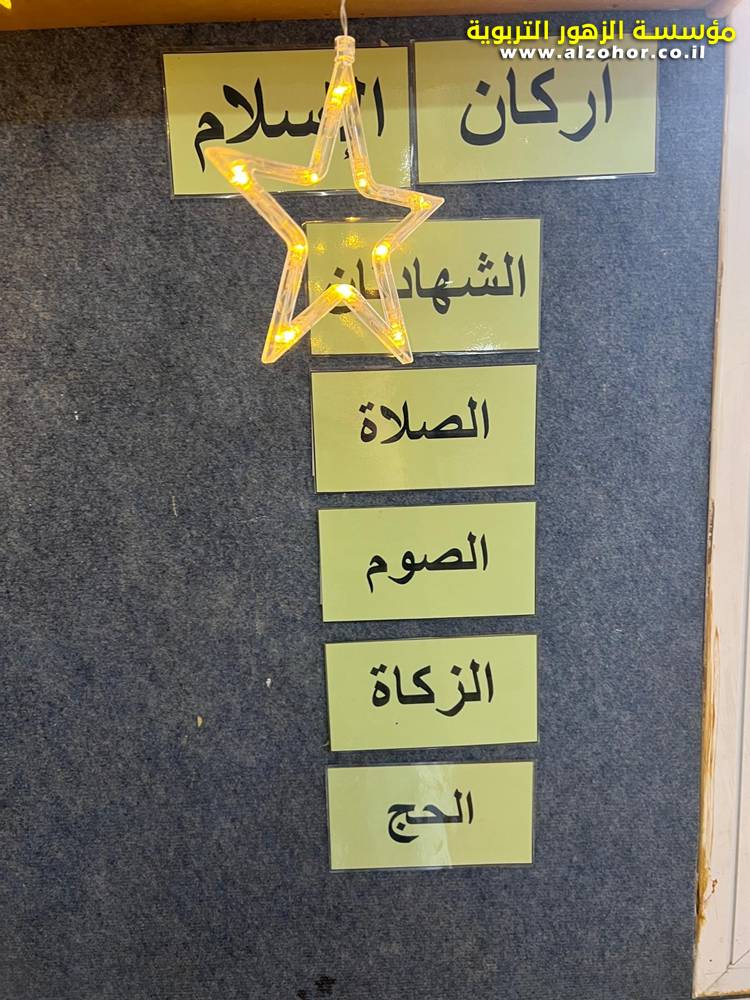 مؤسسة الزهور التربوية
www.alzohor.co.il
أركان الإسلام
الشهادتان
الصلاة
الصوم
الزكاة
الحج